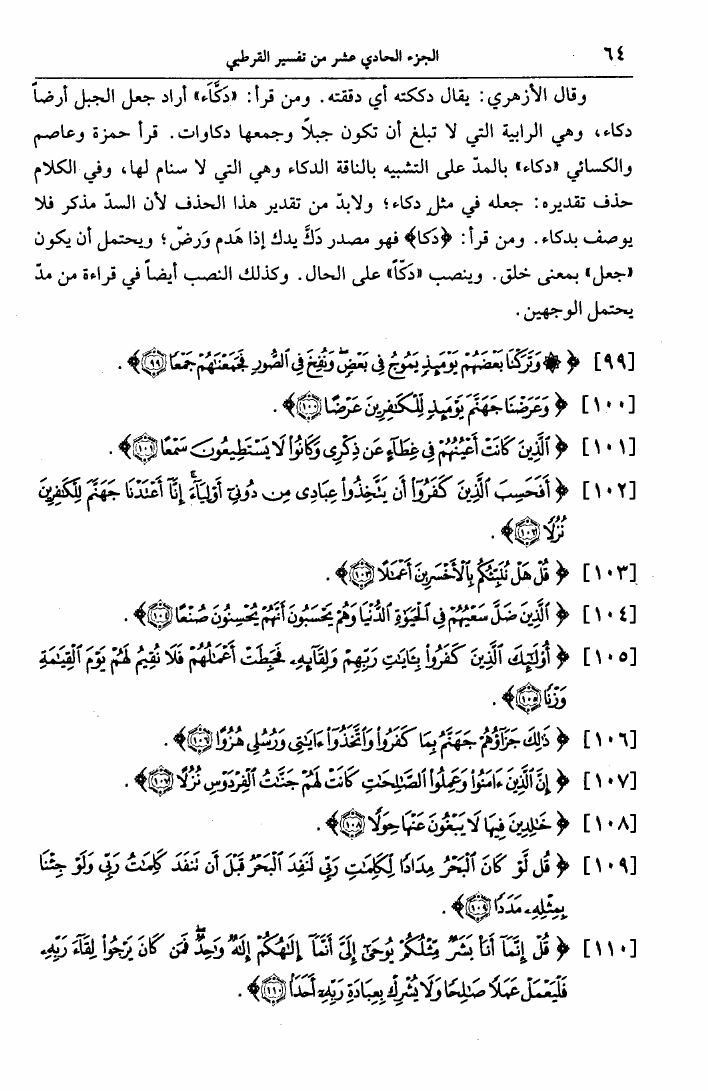 ٦٤ الجزء الحادي عشر من تفسير القرطبي
وقال الأزهري: يقال دككته أي دققته. ومن قرأ: «دَكَّاء» أراد جعل الجبل أرضاً
دكاء، وهي الرابية التي لا تبلغ أن تكون جبلاً وجمعها دكاوات. قرأ حمزة وعاصم
والكسائي «دكاء» بالمدّ على التشبيه بالناقة الدكاء وهي التي لا سنام لها، وفي الكلام
حذف تقديره: جعله في مثل دكاء؛ ولابدّ من تقدير هذا الحذف لأن السدّ مذكر فلا
يوصف بدكاء. ومن قرأ: ﴿دَكا﴾ فهو مصدر دَكَّ يدك إذا هَدم وَرضّ؛ ويحتمل أن يكون
«جعل» بمعنى خلق. وينصب «دَكّاً» على الحال. وكذلك النصب أيضاً في قراءة من مدّ
يحتمل الوجهين.
[٩٩] ﴿ ۞ وَتَرَكْنَا بَعْضَهُمْ يَوْمَئِذٍ يَمُوجُ فِي بَعْضٍ ۖ وَنُفِخَ فِي ٱلصُّورِ فَجَمَعْنَٰهُمْ جَمْعًا ۝٩٩ ﴾.
[١٠٠] ﴿ وَعَرَضْنَا جَهَنَّمَ يَوْمَئِذٍ لِّلْكَٰفِرِينَ عَرْضًا ۝١٠٠ ﴾.
[١٠١] ﴿ ٱلَّذِينَ كَانَتْ أَعْيُنُهُمْ فِي غِطَآءٍ عَن ذِكْرِي وَكَانُوا۟ لَا يَسْتَطِيعُونَ سَمْعًا ۝١٠١ ﴾.
[١٠٢] ﴿ أَفَحَسِبَ ٱلَّذِينَ كَفَرُوٓا۟ أَن يَتَّخِذُوا۟ عِبَادِي مِن دُونِيٓ أَوْلِيَآءَ ۚ إِنَّآ أَعْتَدْنَا جَهَنَّمَ لِلْكَٰفِرِينَ
نُزُلًا ۝١٠٢ ﴾.
[١٠٣] ﴿ قُلْ هَلْ نُنَبِّئُكُم بِٱلْأَخْسَرِينَ أَعْمَٰلًا ۝١٠٣ ﴾.
[١٠٤] ﴿ ٱلَّذِينَ ضَلَّ سَعْيُهُمْ فِي ٱلْحَيَوٰةِ ٱلدُّنْيَا وَهُمْ يَحْسَبُونَ أَنَّهُمْ يُحْسِنُونَ صُنْعًا ۝١٠٤ ﴾.
[١٠٥] ﴿ أُو۟لَٰٓئِكَ ٱلَّذِينَ كَفَرُوا۟ بِـَٔايَٰتِ رَبِّهِمْ وَلِقَآئِهِۦ فَحَبِطَتْ أَعْمَٰلُهُمْ فَلَا نُقِيمُ لَهُمْ يَوْمَ ٱلْقِيَٰمَةِ
وَزْنًا ۝١٠٥ ﴾.
[١٠٦] ﴿ ذَٰلِكَ جَزَآؤُهُمْ جَهَنَّمُ بِمَا كَفَرُوا۟ وَٱتَّخَذُوٓا۟ ءَايَٰتِي وَرُسُلِي هُزُوًا ۝١٠٦ ﴾.
[١٠٧] ﴿ إِنَّ ٱلَّذِينَ ءَامَنُوا۟ وَعَمِلُوا۟ ٱلصَّٰلِحَٰتِ كَانَتْ لَهُمْ جَنَّٰتُ ٱلْفِرْدَوْسِ نُزُلًا ۝١٠٧ ﴾.
[١٠٨] ﴿ خَٰلِدِينَ فِيهَا لَا يَبْغُونَ عَنْهَا حِوَلًا ۝١٠٨ ﴾.
[١٠٩] ﴿ قُل لَّوْ كَانَ ٱلْبَحْرُ مِدَادًا لِّكَلِمَٰتِ رَبِّي لَنَفِدَ ٱلْبَحْرُ قَبْلَ أَن تَنفَدَ كَلِمَٰتُ رَبِّي وَلَوْ جِئْنَا
بِمِثْلِهِۦ مَدَدًا ۝١٠٩ ﴾.
[١١٠] ﴿ قُلْ إِنَّمَآ أَنَا۠ بَشَرٌ مِّثْلُكُمْ يُوحَىٰٓ إِلَيَّ أَنَّمَآ إِلَٰهُكُمْ إِلَٰهٌ وَٰحِدٌ ۖ فَمَن كَانَ يَرْجُوا۟ لِقَآءَ رَبِّهِۦ
فَلْيَعْمَلْ عَمَلًا صَٰلِحًا وَلَا يُشْرِكْ بِعِبَادَةِ رَبِّهِۦٓ أَحَدَۢا ۝١١٠ ﴾.